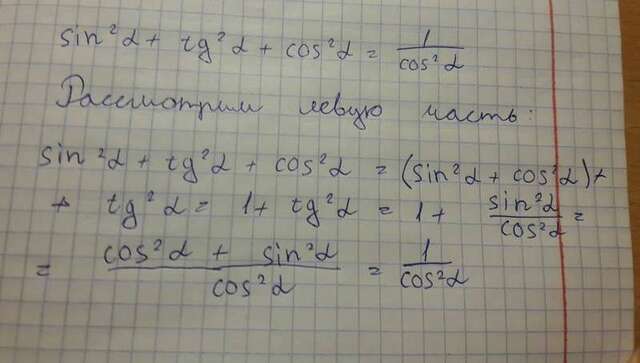 sin²α + tg²α + cos²α = 1/cos²α
Рассмотрим левую часть:
sin²α + tg²α + cos²α = (sin²α + cos²α) +
+ tg²α = 1 + tg²α = 1 + sin²α/cos²α =
= (cos²α + sin²α)/cos²α = 1/cos²α